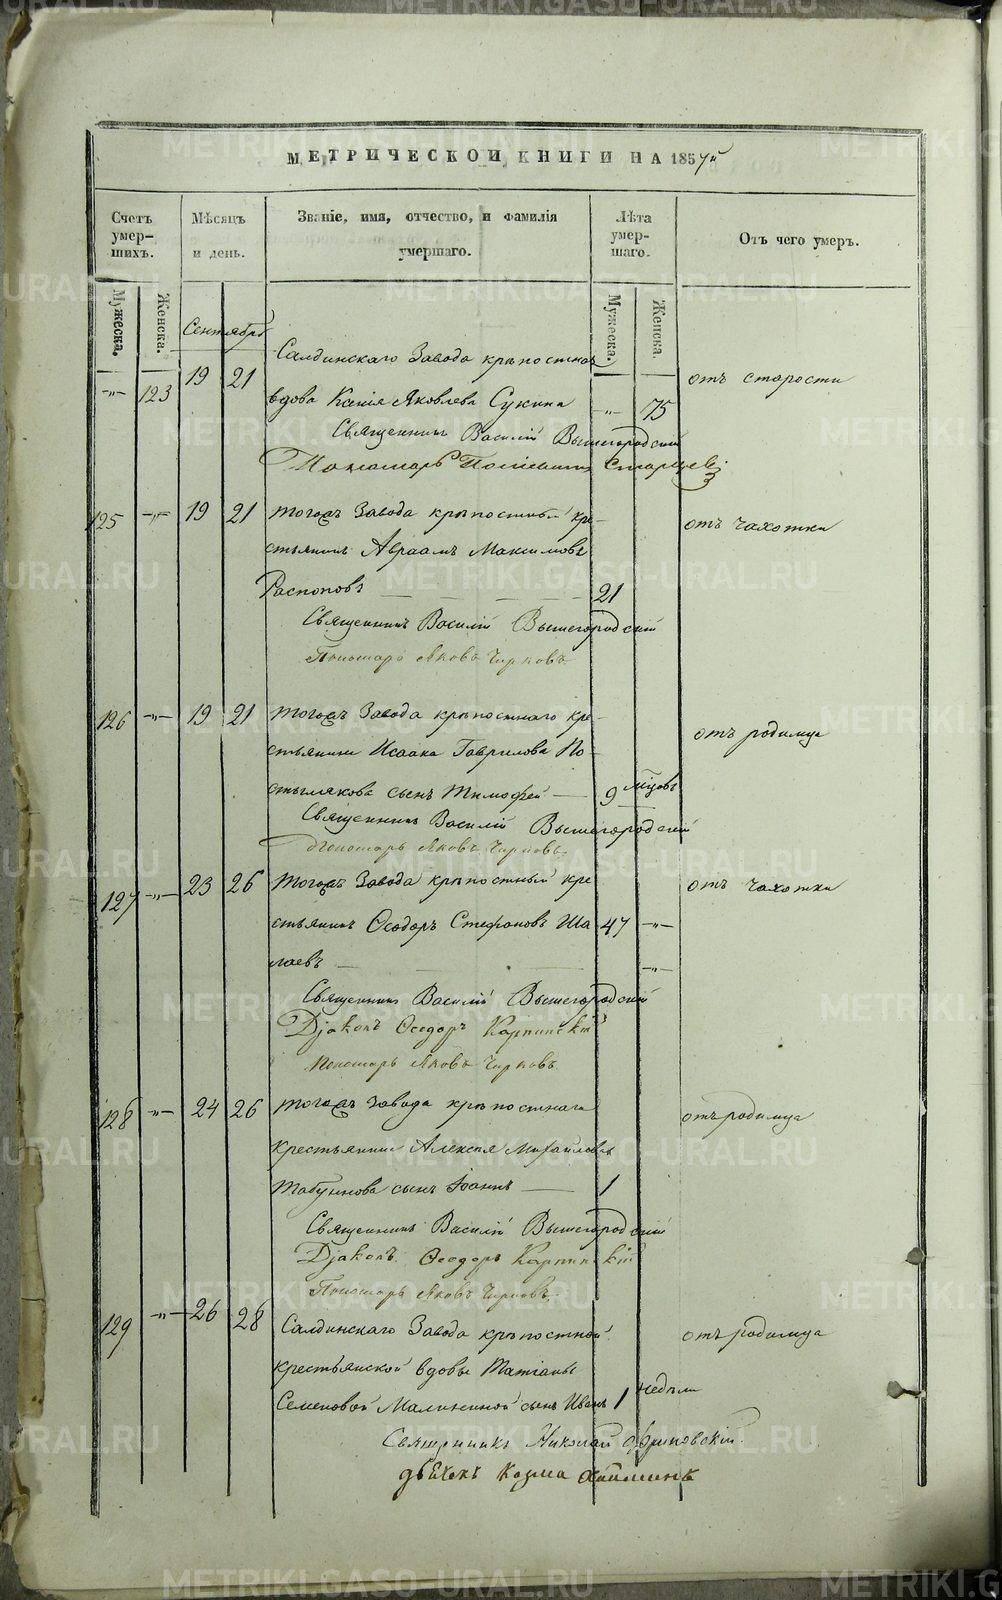 МЕТРИЧЕСКОЙ КНИГИ НА 1857й
Счетъ умер-шихъ.
Мѣсяцъ и день.
Званіе, имя, отчество, и фамилія умершаго.
Лѣта умер-шаго.
Отъ чего умеръ.
Мужеска.
Женска.
Мужеска.
Женска.
Сентябрь
Салдинскаго Завода крѣпостная
-"- 123 19 21 отъ старости
вдова Ксенія Яковлева Сукина -"- 75
Священникъ Василій Вышегородскій
Пономарь Старцевъ
125 -"- 19 21 тогожъ Завода крѣпостный кре-
отъ чахотки
стьянинъ Авраамъ Максимовъ
Распоповъ 21
Священникъ Василій Вышегородскій
Пономарь Яковъ Чирковъ
126 -"- 19 21 тогожъ Завода крѣпостнаго кре-
отъ родимца
стьянина Исаака Гаврилова По-
стылякова сынъ Тимофей 9 мѣсяцовъ
Священникъ Василій Вышегородскій
Пономарь Яковъ Чирковъ
127 -"- 23 26 тогожъ Завода крѣпостный кре
отъ чахотки
стьянинъ Ѳеодоръ Стефановъ Ша 47 -"-
лаевъ -"-
Священникъ Василій Вышегородскій
Дjаконъ Ѳеодоръ Карпинскій
Пономарь Яковъ Чирковъ.
128 -"- 24 26 тогожъ Завода крѣпостнаго
отъ родимца
крестьянина Алексія Михайлова
Табункова сынъ Іоаннъ 1
Священникъ Василій Вышегородскій
Дjаконъ Ѳеодоръ Карпинскій
Пономарь Яковъ Чирковъ.
129 -"- 26 28 Салдинскаго Завода крѣпостной
отъ родимца
крестьянской вдовы Татіаны
Семеновой Малининой сынъ Иванъ 1 недѣли
Священникъ Николай
дьячекъ Козма